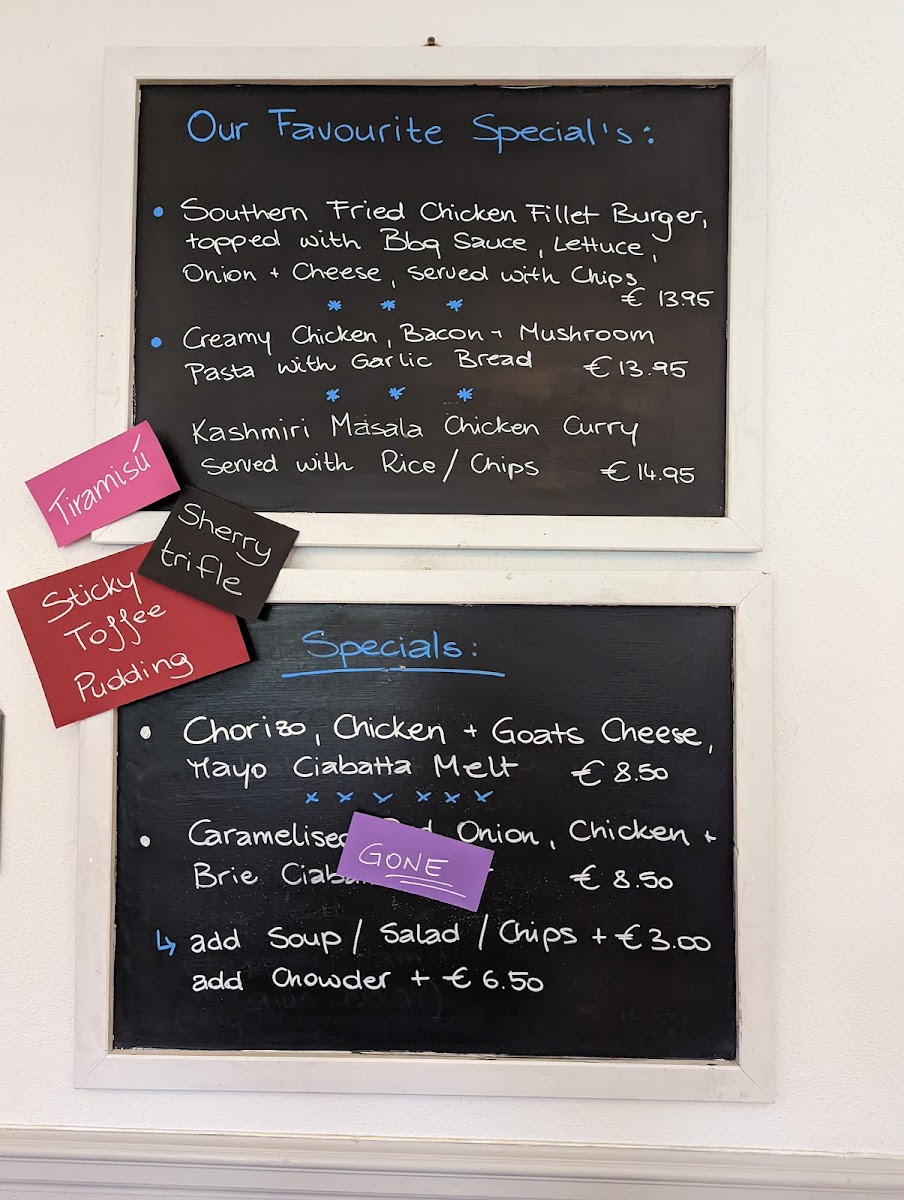 Our Favourite Special's:
• Southern Fried Chicken Fillet Burger,
topped with Bbq Sauce, Lettuce,
Onion + Cheese, served with Chips
€ 13.95
* * *
• Creamy Chicken, Bacon + Mushroom
Pasta with Garlic Bread €13.95
* * *
Kashmiri Masala Chicken Curry
Served with Rice / Chips €14.95
Tiramisú
Sherry
trifle
Sticky
Toffee
Pudding
Specials:
• Chorizo, Chicken + Goats Cheese,
Mayo Ciabatta Melt € 8.50
x x x x x x
• Caramelised Onion, Chicken +
GONE
Brie € 8.50
↳ add Soup / Salad / Chips + €3.00
add Chowder + €6.50